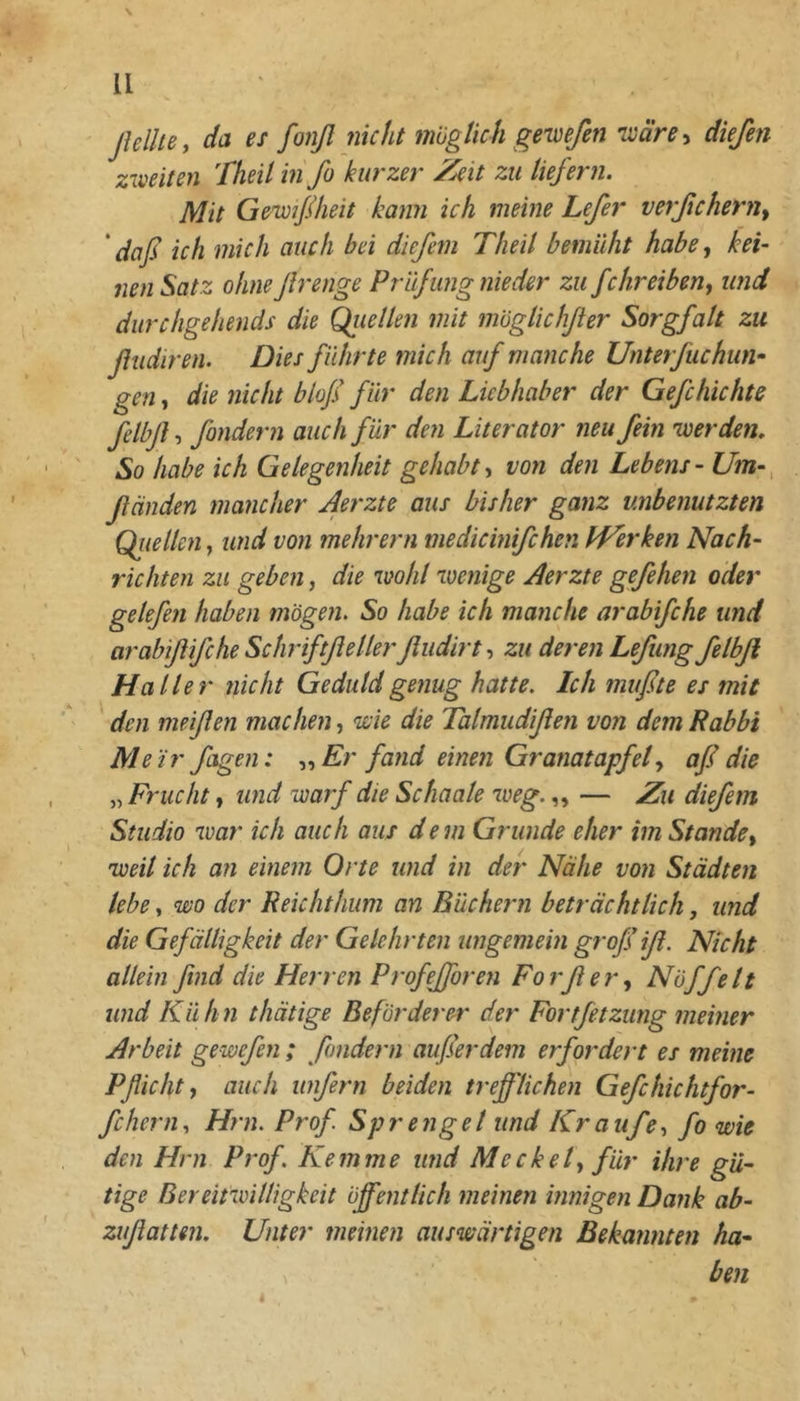 II
ſtellte, da es ſonſt nicht möglich geweſen wäre, dieſen
zweiten Theil in ſo kurzer Zeit zu liefern.
Mit Gewißheit kann ich meine Leſer verſichern,
daß ich mich auch bei dieſem Theil bemüht habe, kei-
nen Satz ohne ſtrenge Prüfung nieder zu ſchreiben, und
durchgehends die Quellen mit möglichſter Sorgfalt zu
ſtudiren. Dies führte mich auf manche Unterſuchun-
gen, die nicht bloß für den Liebhaber der Geſchichte
ſelbſt, ſondern auch für den Literator neu ſein werden.
So habe ich Gelegenheit gehabt, von den Lebens-Um-
ſtänden mancher Aerzte aus bisher ganz unbenutzten
Quellen, und von mehrern mediciniſchen Werken Nach-
richten zu geben, die wohl wenige Aerzte geſehen oder
geleſen haben mögen. So habe ich manche arabiſche und
arabiſtiſche Schriftſteller ſtudirt, zu deren Leſung ſelbſt
Haller nicht Geduld genug hatte. Ich mußte es mit
den meiſten machen, wie die Talmudiſten von dem Rabbi
Meïr ſagen: „Er fand einen Granatapfel, aß die
„Frucht, und warf die Schaale weg.„ — Zu dieſem
Studio war ich auch aus dem Grunde eher im Stande,
weil ich an einem Orte und in der Nähe von Städten
lebe, wo der Reichthum an Büchern beträchtlich, und
die Gefälligkeit der Gelehrten ungemein groß iſt. Nicht
allein ſind die Herren Profeſſoren Forſter, Nöſſelt
und Kühn thätige Beförderer der Fortſetzung meiner
Arbeit geweſen; ſondern außerdem erfordert es meine
Pflicht, auch unſern beiden trefflichen Geſchichtfor-
ſchern, Hrn. Prof. Sprengel und Krauſe, ſo wie
den Hrn Prof. Kemme und Meckel, für ihre gü-
tige Bereitwilligkeit öffentlich meinen innigen Dank ab-
zuſtatten. Unter meinen auswärtigen Bekannten ha-
ben